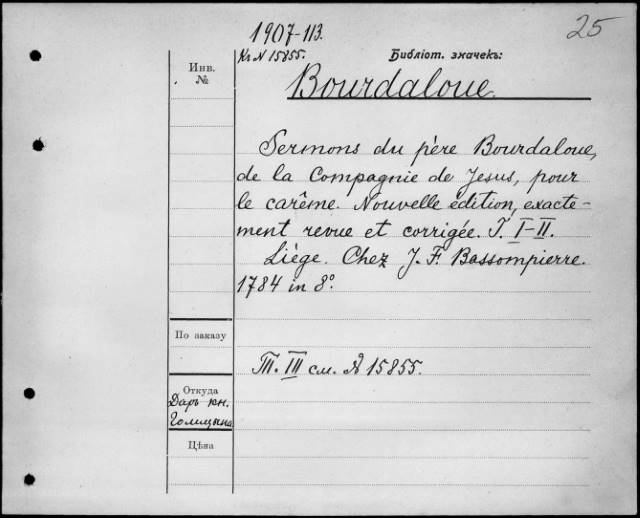 25
1907-113.
Kr N 15855.
Библіот. значекъ:
Инв.
№
Bourdaloue.
Sermons du père Bourdaloue,
de la Compagnie de Jesus, pour
le carême. Nouvelle édition, exacte-
ment revue et corrigée. T. I-II.
Liége. Chez J. F. Bassompierre.
1784 in 8º.
По заказу
Т. III см. № 15855.
Откуда
Даръ кн.
Голицына
Цѣна